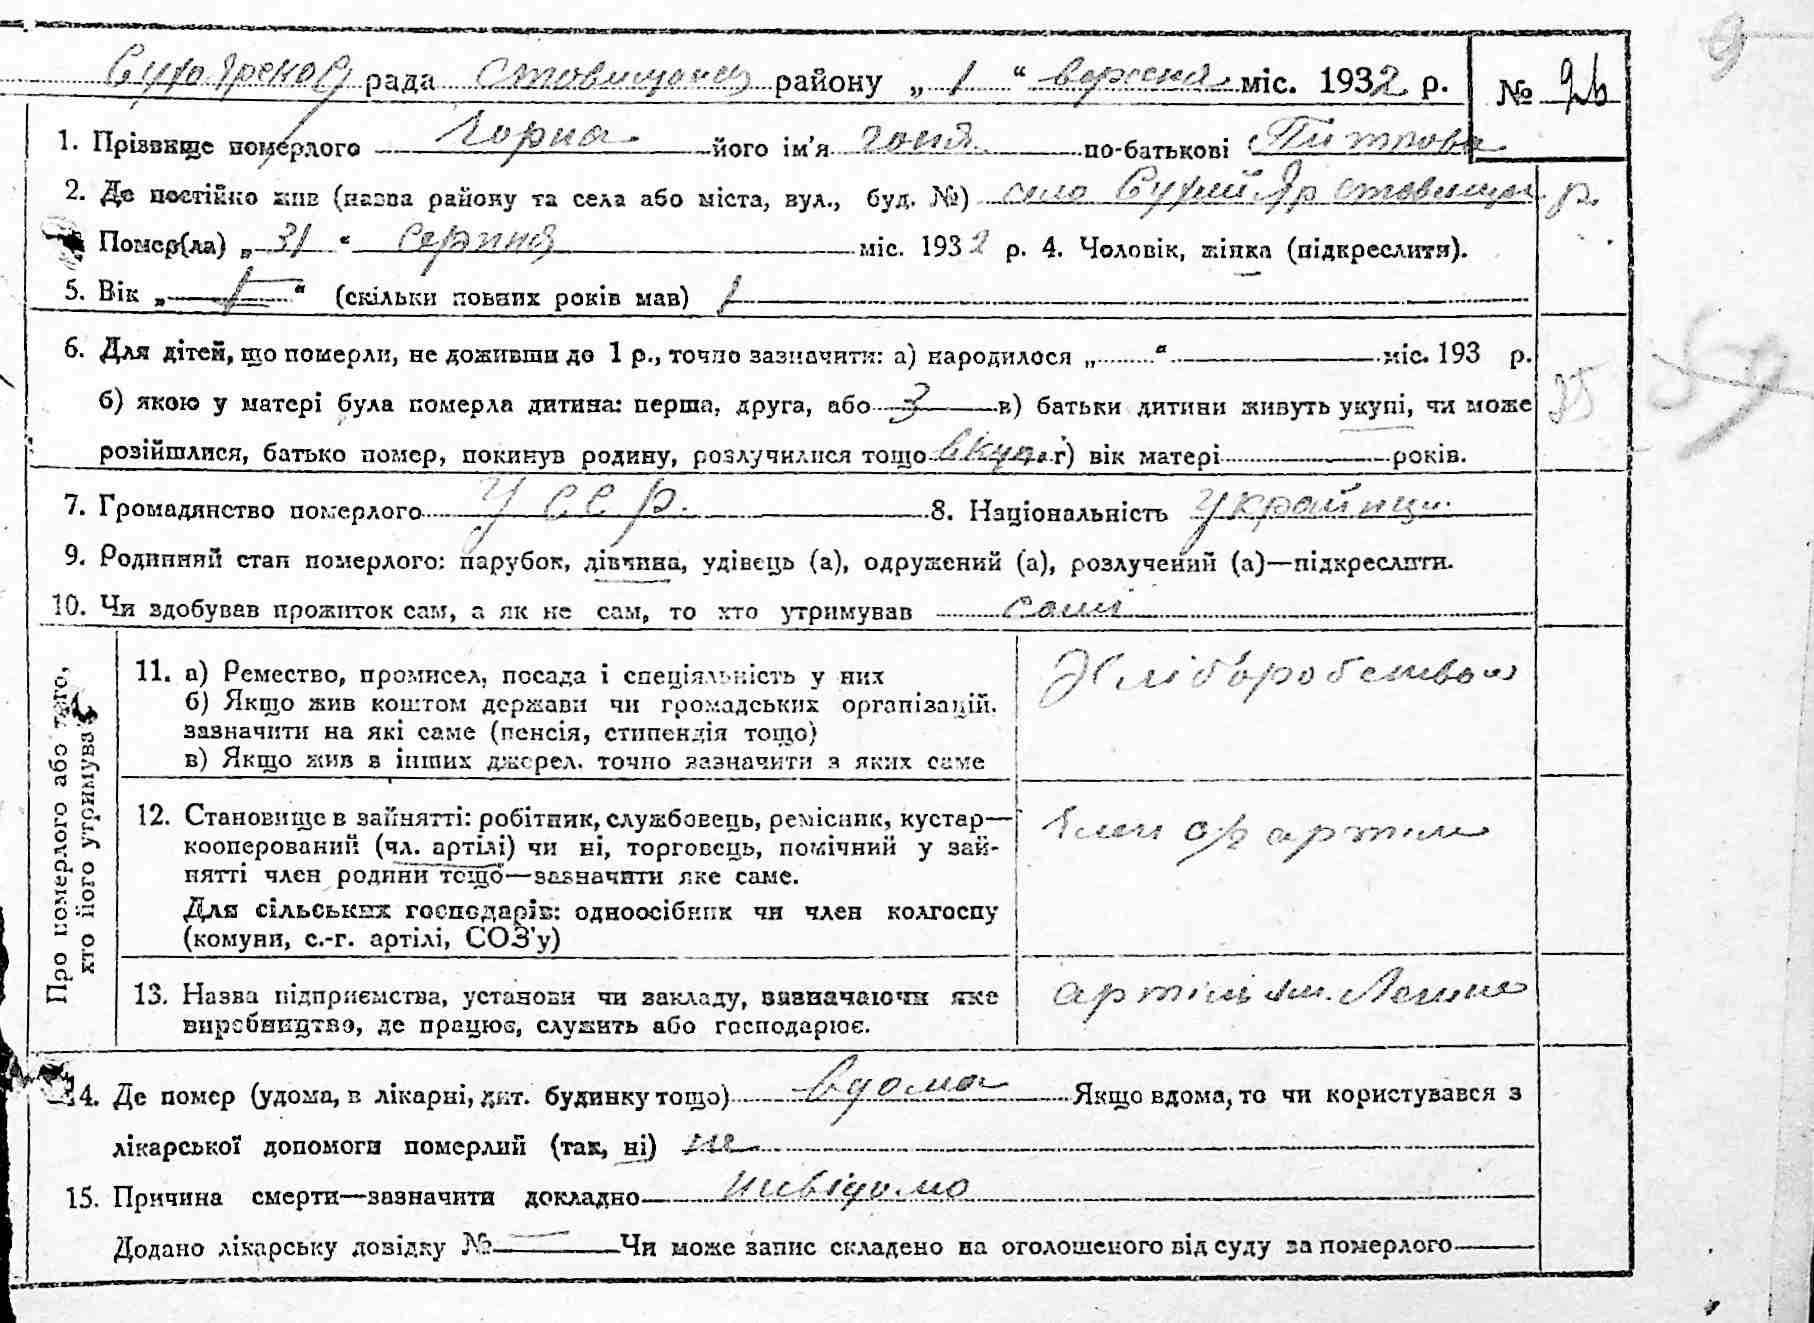 Сухоярська рада Ставищан району „ 1 “ вересня міс. 1932 р. № 26
1. Прізвище померлого Чорна його ім'я по-батькові
2. Де постійно жив (назва району та села або міста, вул., буд. №) село Сухий Яр Ставищан р.
Помер(ла) „ 31 “ серпня міс. 1932 р. 4. Чоловік, жінка (підкреслити).
5. Вік „ 1 “ (скільки повних років мав) 1
6. Для дітей, що померли, не доживши до 1 р., точно зазначити: а) народилося „ “ міс. 193 р.
б) якою у матері була померла дитина: перша, друга, або 3 в) батьки дитини живуть укупі, чи може
розійшлися, батько помер, покинув родину, розлучилися тощо вкупі г) вік матері років.
7. Громадянство померлого УССР. 8. Національність Українц.
9. Родинний стан померлого: парубок, дівчина, удівець (а), одружений (а), розлучений (а)—підкреслити.
10. Чи здобував прожиток сам, а як не сам, то хто утримував
Про померлого або того,
хто його утримував
11. а) Ремество, промисел, посада і спеціяльність у них
б) Якщо жив коштом держави чи громадських організацій,
зазначити на які саме (пенсія, стипендія тощо)
в) Якщо жив з інших джерел, точно зазначити з яких саме
Хліборобством
12. Становище в зайнятті: робітник, службовець, ремісник, кустар—
кооперований (чл. артілі) чи ні, торговець, помічний у зай-
нятті член родини тощо—зазначити яке саме.
Для сільських господарів: одноосібник чи член колгоспу
(комуни, с.-г. артілі, СОЗ'у)
член с/г артіли
13. Назва підприємства, установи чи закладу, визначаючи яке
виробництво, де працює, служить або господарює.
артіль ім. Леніна
14. Де помер (удома, в лікарні, дит. будинку тощо) вдома Якщо вдома, то чи користувався з
лікарської допомоги померлий (так, ні) не
15. Причина смерти—зазначити докладно невідомо
Додано лікарську довідку № — Чи може запис складено на оголошеного від суду за померлого